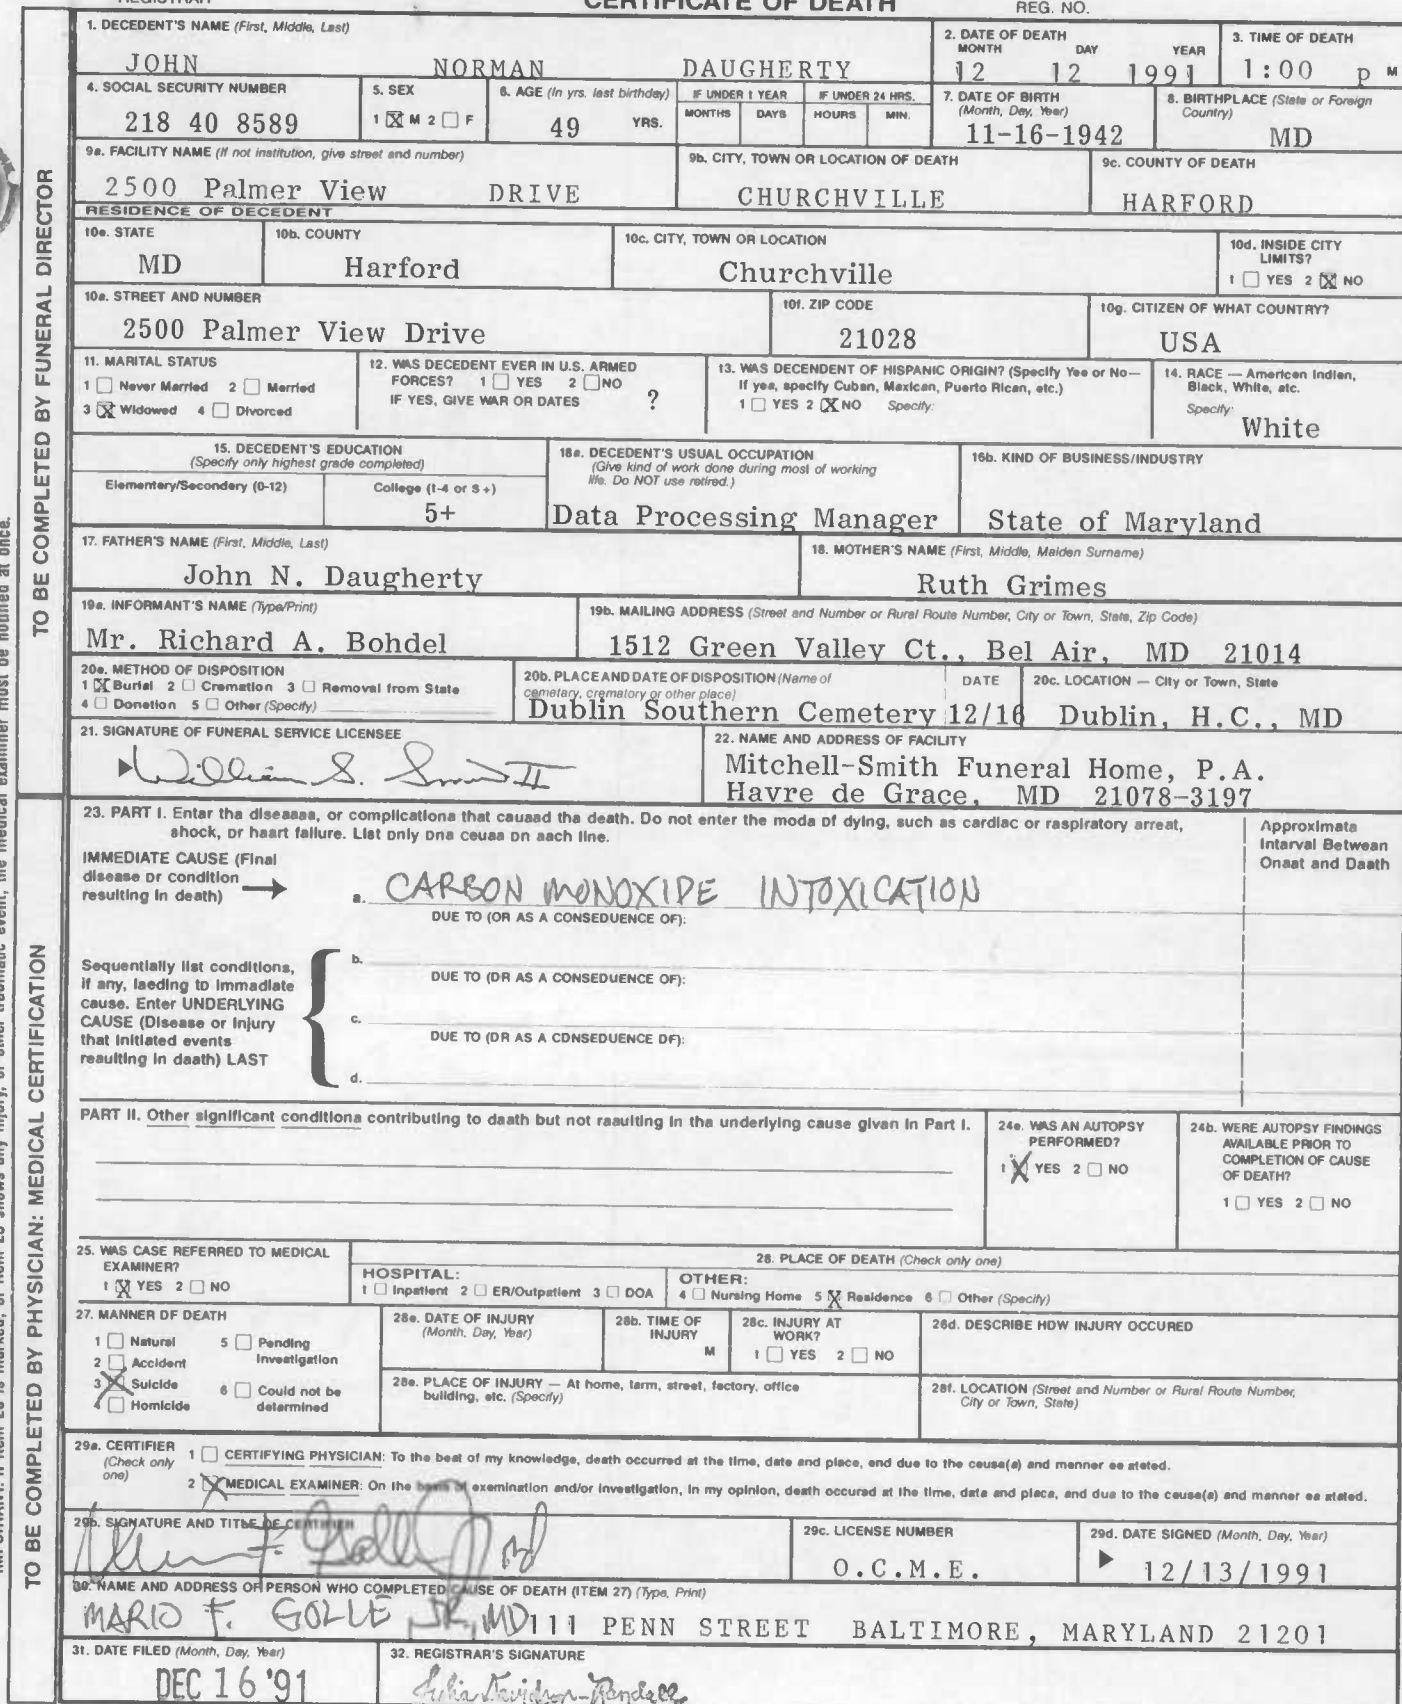 CERTIFICATE OF DEATH
REG. NO.
1. DECEDENT'S NAME (First, Middle, Last)
JOHN NORMAN DAUGHERTY
2. DATE OF DEATH
MONTH DAY YEAR
12 12 1991
3. TIME OF DEATH
1:00 p M
4. SOCIAL SECURITY NUMBER
218 40 8589
5. SEX
1 ☒ M 2 ☐ F
6. AGE (In yrs. last birthday)
49 YRS.
IF UNDER 1 YEAR
MONTHS DAYS
IF UNDER 24 HRS.
HOURS MIN.
7. DATE OF BIRTH
(Month, Day, Year)
11-16-1942
8. BIRTHPLACE (State or Foreign
Country)
MD
9a. FACILITY NAME (If not institution, give street and number)
2500 Palmer View DRIVE
9b. CITY, TOWN OR LOCATION OF DEATH
CHURCHVILLE
9c. COUNTY OF DEATH
HARFORD
RESIDENCE OF DECEDENT
10a. STATE
MD
10b. COUNTY
Harford
10c. CITY, TOWN OR LOCATION
Churchville
10d. INSIDE CITY
LIMITS?
1 ☐ YES 2 ☒ NO
10e. STREET AND NUMBER
2500 Palmer View Drive
10f. ZIP CODE
21028
10g. CITIZEN OF WHAT COUNTRY?
USA
11. MARITAL STATUS
1 ☐ Never Married 2 ☐ Married
3 ☒ Widowed 4 ☐ Divorced
12. WAS DECEDENT EVER IN U.S. ARMED
FORCES? 1 ☐ YES 2 ☐ NO
IF YES, GIVE WAR OR DATES ?
13. WAS DECENDENT OF HISPANIC ORIGIN? (Specify Yes or No—
If yes, specify Cuban, Mexican, Puerto Rican, etc.)
1 ☐ YES 2 ☒ NO Specify:
14. RACE — American Indian,
Black, White, etc.
Specify:
White
15. DECEDENT'S EDUCATION
(Specify only highest grade completed)
Elementary/Secondary (0-12)
College (1-4 or 5+)
5+
16a. DECEDENT'S USUAL OCCUPATION
(Give kind of work done during most of working
life. Do NOT use retired.)
Data Processing Manager
16b. KIND OF BUSINESS/INDUSTRY
State of Maryland
17. FATHER'S NAME (First, Middle, Last)
John N. Daugherty
18. MOTHER'S NAME (First, Middle, Maiden Surname)
Ruth Grimes
19a. INFORMANT'S NAME (Type/Print)
Mr. Richard A. Bohdel
19b. MAILING ADDRESS (Street and Number or Rural Route Number, City or Town, State, Zip Code)
1512 Green Valley Ct., Bel Air, MD 21014
20a. METHOD OF DISPOSITION
1 ☒ Burial 2 ☐ Cremation 3 ☐ Removal from State
4 ☐ Donation 5 ☐ Other (Specify)
20b. PLACE AND DATE OF DISPOSITION (Name of
cemetary, crematory or other place)
DATE
Dublin Southern Cemetery 12/16
20c. LOCATION — City or Town, State
Dublin, H.C., MD
21. SIGNATURE OF FUNERAL SERVICE LICENSEE
William S. Smith II
22. NAME AND ADDRESS OF FACILITY
Mitchell-Smith Funeral Home, P.A.
Havre de Grace, MD 21078-3197
TO BE COMPLETED BY FUNERAL DIRECTOR
23. PART I. Enter the diseases, or complications that caused the death. Do not enter the mode of dying, such as cardiac or respiratory arrest,
shock, or heart failure. List only one cause on each line.
Approximate
Interval Between
Onset and Death
IMMEDIATE CAUSE (Final
disease or condition
resulting in death) →
a. CARBON MONOXIDE INTOXICATION
DUE TO (OR AS A CONSEQUENCE OF):
Sequentially list conditions,
if any, leading to immediate
cause. Enter UNDERLYING
CAUSE (Disease or injury
that initiated events
resulting in death) LAST
b.
DUE TO (OR AS A CONSEQUENCE OF):
c.
DUE TO (OR AS A CONSEQUENCE OF):
d.
PART II. Other significant conditions contributing to death but not resulting in the underlying cause given in Part I.
24a. WAS AN AUTOPSY
PERFORMED?
1 ☒ YES 2 ☐ NO
24b. WERE AUTOPSY FINDINGS
AVAILABLE PRIOR TO
COMPLETION OF CAUSE
OF DEATH?
1 ☐ YES 2 ☐ NO
25. WAS CASE REFERRED TO MEDICAL
EXAMINER?
1 ☒ YES 2 ☐ NO
26. PLACE OF DEATH (Check only one)
HOSPITAL:
1 ☐ Inpatient 2 ☐ ER/Outpatient 3 ☐ DOA
OTHER:
4 ☐ Nursing Home 5 ☒ Residence 6 ☐ Other (Specify)
27. MANNER OF DEATH
1 ☐ Natural 5 ☐ Pending
Investigation
2 ☐ Accident
3 ☒ Suicide 6 ☐ Could not be
determined
4 ☐ Homicide
28a. DATE OF INJURY
(Month, Day, Year)
28b. TIME OF
INJURY
M
28c. INJURY AT
WORK?
1 ☐ YES 2 ☐ NO
28d. DESCRIBE HOW INJURY OCCURED
28e. PLACE OF INJURY — At home, farm, street, factory, office
building, etc. (Specify)
28f. LOCATION (Street and Number or Rural Route Number,
City or Town, State)
29a. CERTIFIER
(Check only
one)
1 ☐ CERTIFYING PHYSICIAN: To the best of my knowledge, death occurred at the time, date and place, and due to the cause(s) and manner as stated.
2 ☒ MEDICAL EXAMINER: On the basis of examination and/or investigation, in my opinion, death occured at the time, date and place, and due to the cause(s) and manner as stated.
29b. SIGNATURE AND TITLE OF CERTIFIER
29c. LICENSE NUMBER
O.C.M.E.
29d. DATE SIGNED (Month, Day, Year)
12/13/1991
30. NAME AND ADDRESS OF PERSON WHO COMPLETED CAUSE OF DEATH (ITEM 27) (Type, Print)
MARIO F. GOLLE JR, MD 111 PENN STREET BALTIMORE, MARYLAND 21201
31. DATE FILED (Month, Day, Year)
DEC 16 '91
32. REGISTRAR'S SIGNATURE
Julia Davidson-Randall
TO BE COMPLETED BY PHYSICIAN: MEDICAL CERTIFICATION